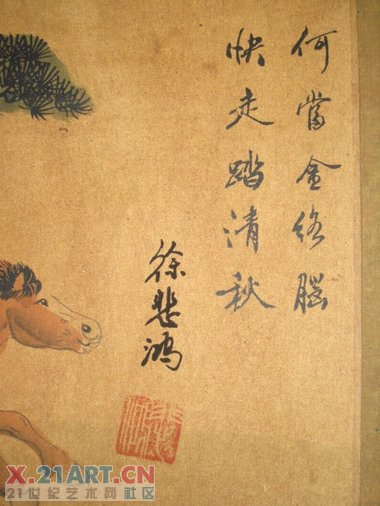 何當金络腦
快走踏清秋
徐悲鴻
X.21ART.CN
21世纪艺术网社区